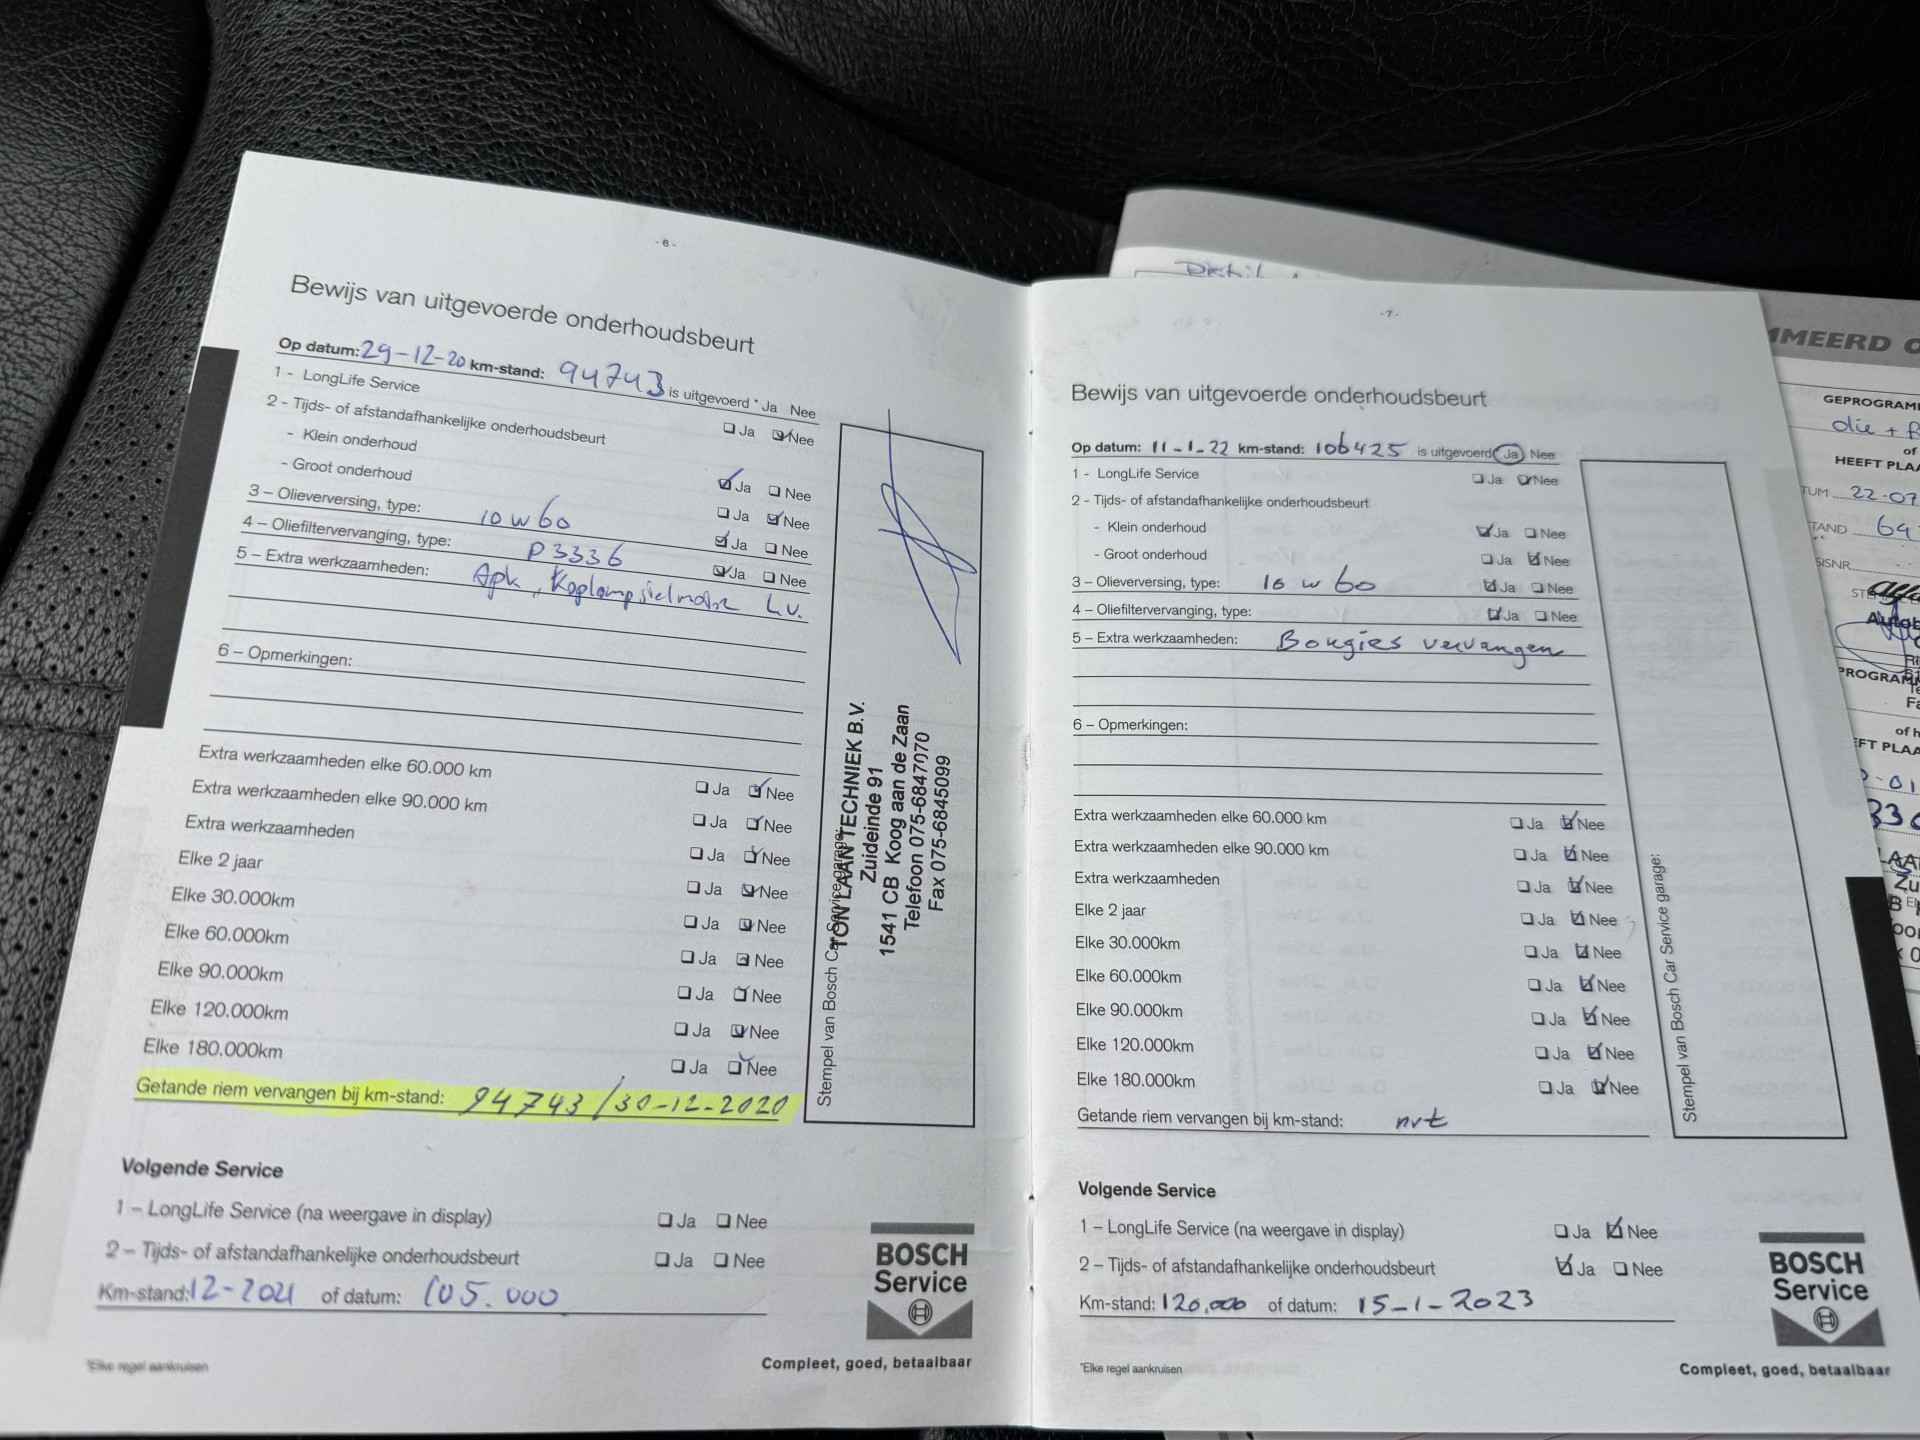 - 6 -
Bewijs van uitgevoerde onderhoudsbeurt
Op datum: 29-12-20 km-stand: 94743 is uitgevoerd * Ja Nee
1 - LongLife Service Ja Nee
2 - Tijds- of afstandafhankelijke onderhoudsbeurt
- Klein onderhoud Ja Nee
- Groot onderhoud Ja Nee
3 – Olieverversing, type: 10 w 60 Ja Nee
4 – Oliefiltervervanging, type: P3336 Ja Nee
5 – Extra werkzaamheden: Apk, L.V.
6 – Opmerkingen:
Extra werkzaamheden elke 60.000 km Ja Nee
Extra werkzaamheden elke 90.000 km Ja Nee
Extra werkzaamheden Ja Nee
Elke 2 jaar Ja Nee
Elke 30.000km Ja Nee
Elke 60.000km Ja Nee
Elke 90.000km Ja Nee
Elke 120.000km Ja Nee
Elke 180.000km Ja Nee
Getande riem vervangen bij km-stand: 94743 / 30-12-2020
Stempel van Bosch Car Service garage:
TON LAAN TECHNIEK B.V.
Zuideinde 91
1541 CB Koog aan de Zaan
Telefoon 075-6847070
Fax 075-6845099
Volgende Service
1 – LongLife Service (na weergave in display) Ja Nee
2 – Tijds- of afstandafhankelijke onderhoudsbeurt Ja Nee
Km-stand: 12-2021 of datum: 105.000
*Elke regel aankruisen
BOSCH
Service
Compleet, goed, betaalbaar
- 7 -
Bewijs van uitgevoerde onderhoudsbeurt
Op datum: 11-1-22 km-stand: 106425 is uitgevoerd Ja Nee
1 - LongLife Service Ja Nee
2 - Tijds- of afstandafhankelijke onderhoudsbeurt
- Klein onderhoud Ja Nee
- Groot onderhoud Ja Nee
3 – Olieverversing, type: 10 w 60 Ja Nee
4 – Oliefiltervervanging, type: Ja Nee
5 – Extra werkzaamheden: Bougies vervangen
6 – Opmerkingen:
Extra werkzaamheden elke 60.000 km Ja Nee
Extra werkzaamheden elke 90.000 km Ja Nee
Extra werkzaamheden Ja Nee
Elke 2 jaar Ja Nee
Elke 30.000km Ja Nee
Elke 60.000km Ja Nee
Elke 90.000km Ja Nee
Elke 120.000km Ja Nee
Elke 180.000km Ja Nee
Getande riem vervangen bij km-stand: nvt
Stempel van Bosch Car Service garage:
Volgende Service
1 – LongLife Service (na weergave in display) Ja Nee
2 – Tijds- of afstandafhankelijke onderhoudsbeurt Ja Nee
Km-stand: 120.000 of datum: 15-1-2023
*Elke regel aankruisen
BOSCH
Service
Compleet, goed, betaalbaar
MMEERD O
GEPROGRAMM
die +
of
HEEFT PLAA
TUM 22-07
TAND 69
SISNR.
Autob
PROGRAMM
of h
EFT PLAA